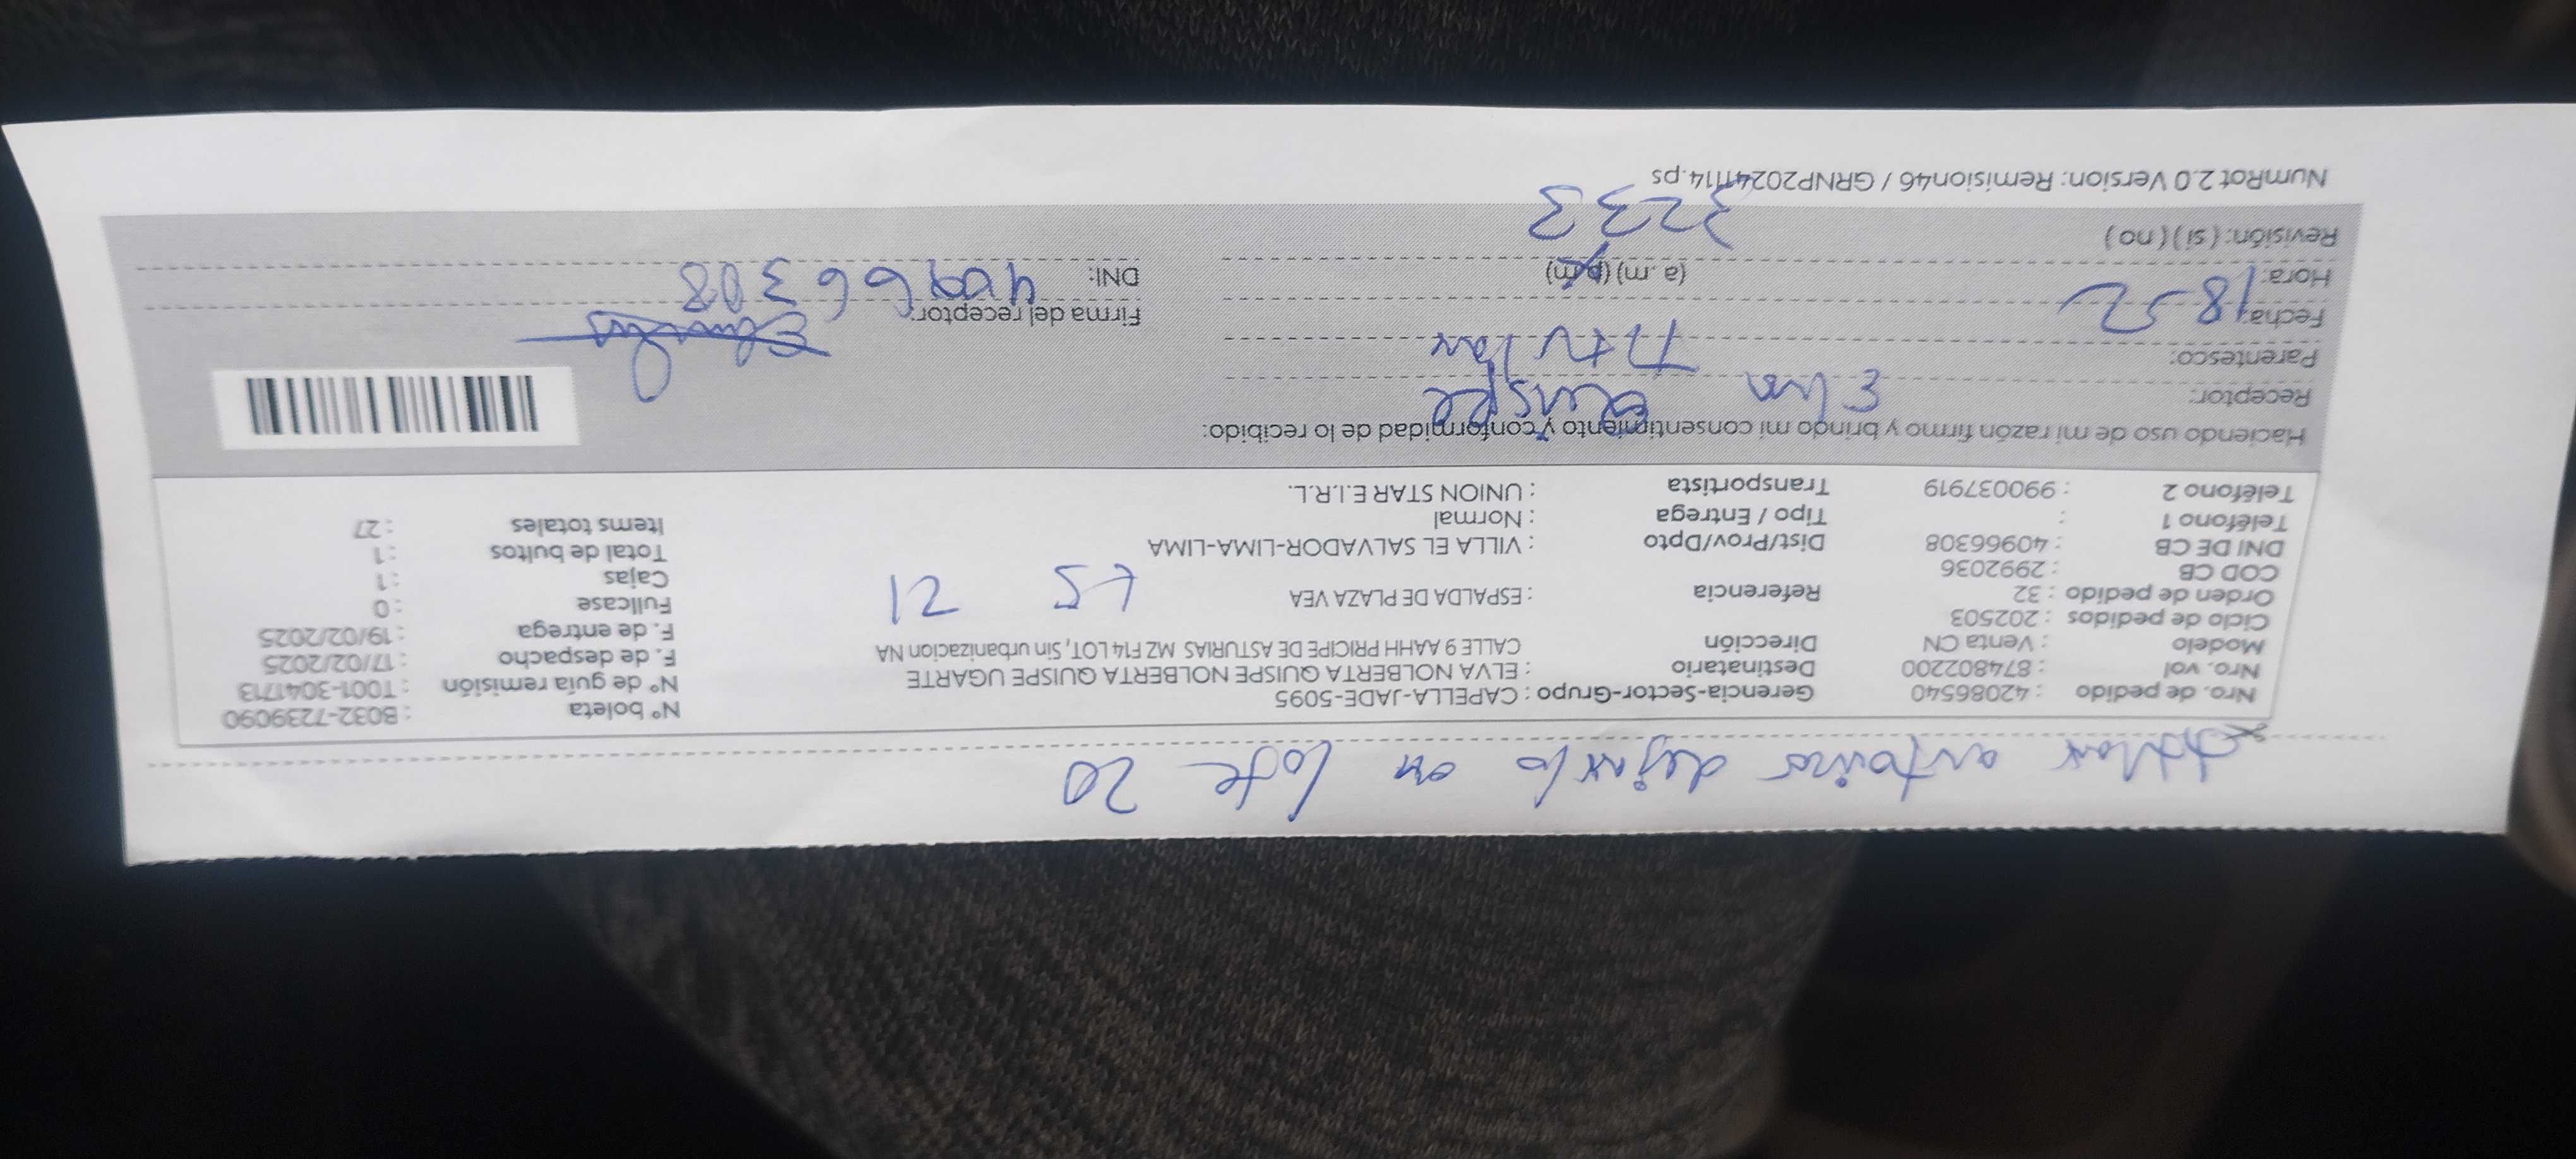 dejarlo en lote 20
Nro. de pedido : 42086540 Gerencia-Sector-Grupo : CAPELLA-JADE-5095 N° boleta : B032-7239090
Nro. vol : 874802200 Destinatario : ELVA NOLBERTA QUISPE NOLBERTA QUISPE UGARTE N° de guía remisión : T001-3041713
Modelo : Venta CN Dirección CALLE 9 AAHH PRICIPE DE ASTURIAS MZ F14 LOT, Sin urbanizacion NA F. de despacho : 17/02/2025
Ciclo de pedidos : 202503 F. de entrega : 19/02/2025
Orden de pedido : 32 Referencia : ESPALDA DE PLAZA VEA 21 Fullcase : 0
COD CB : 2992036 Cajas : 1
DNI DE CB : 40966308 Dist/Prov/Dpto : VILLA EL SALVADOR-LIMA-LIMA Total de bultos : 1
Teléfono 1 : Tipo / Entrega : Normal Items totales : 27
Teléfono 2 : 990037919 Transportista : UNION STAR E.I.R.L.
Haciendo uso de mi razón firmo y brindo mi consentimiento y conformidad de lo recibido:
Receptor: Elva Quispe
Parentesco: Titular
Fecha: 18-2 Firma del receptor:
Hora: (a. m) (p.m) DNI: 40966308
Revisión: ( si ) ( no ) 3233
NumRot 2.0 Version: Remision46 / GRNP20241114.ps